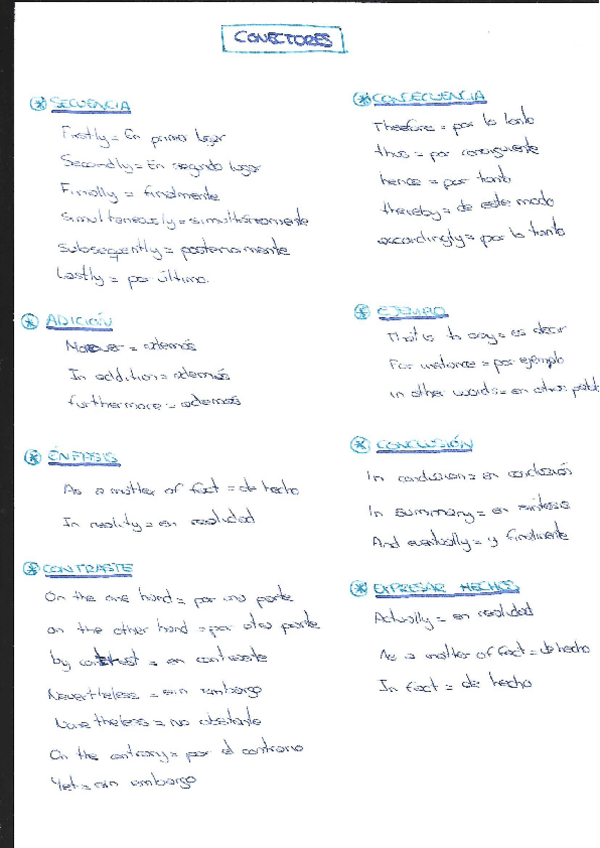 CONECTORES
* SECUENCIA
Firstly = En primer lugar
Secondly = En segundo lugar
Finally = finalmente
Simultaneously = simultáneamente
Subsequently = posteriormente
Lastly = por último.
* ADICIÓN
Moreover = además
In addition = además
furthermore = además
* ÉNFASIS
As a matter of fact = de hecho
In reality = en realidad
* CONTRASTE
On the one hand = por una parte
on the other hand = por otra parte
by contrast = en contraste
Nevertheless = sin embargo
Nonetheless = no obstante
On the contrary = por el contrario
Yet = sin embargo
* CONSECUENCIA
Therefore = por lo tanto
thus = por consiguiente
hence = por tanto
thereby = de este modo
accordingly = por lo tanto
* EJEMPLO
That is to say = es decir
For instance = por ejemplo
in other words = en otras palab
* CONCLUSIÓN
In conclusion = en conclusión
In summary = en síntesis
And eventually = y finalmente
* EXPRESAR HECHOS
Actually = en realidad
As a matter of fact = de hecho
In fact = de hecho